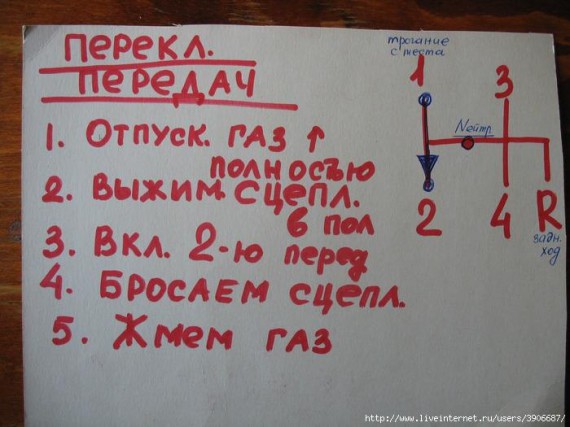 ПЕРЕКЛ.
ПЕРЕДАЧ
1. ОТПУСК. ГАЗ ↑
ПОЛНОСТЬЮ
2. ВЫЖИМ. СЦЕПЛ.
в пол
3. ВКЛ. 2-ю перед
4. БРОСАЕМ СЦЕПЛ.
5. Жмем ГАЗ
трогание
с места
1 3
Nейтр.
2 4 R
задн.
ход
http://www.liveinternet.ru/users/3906687/